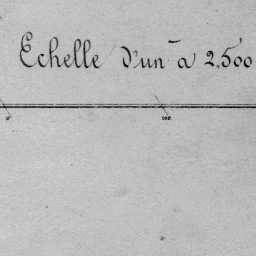 Echelle d'un à 2,500
0 100